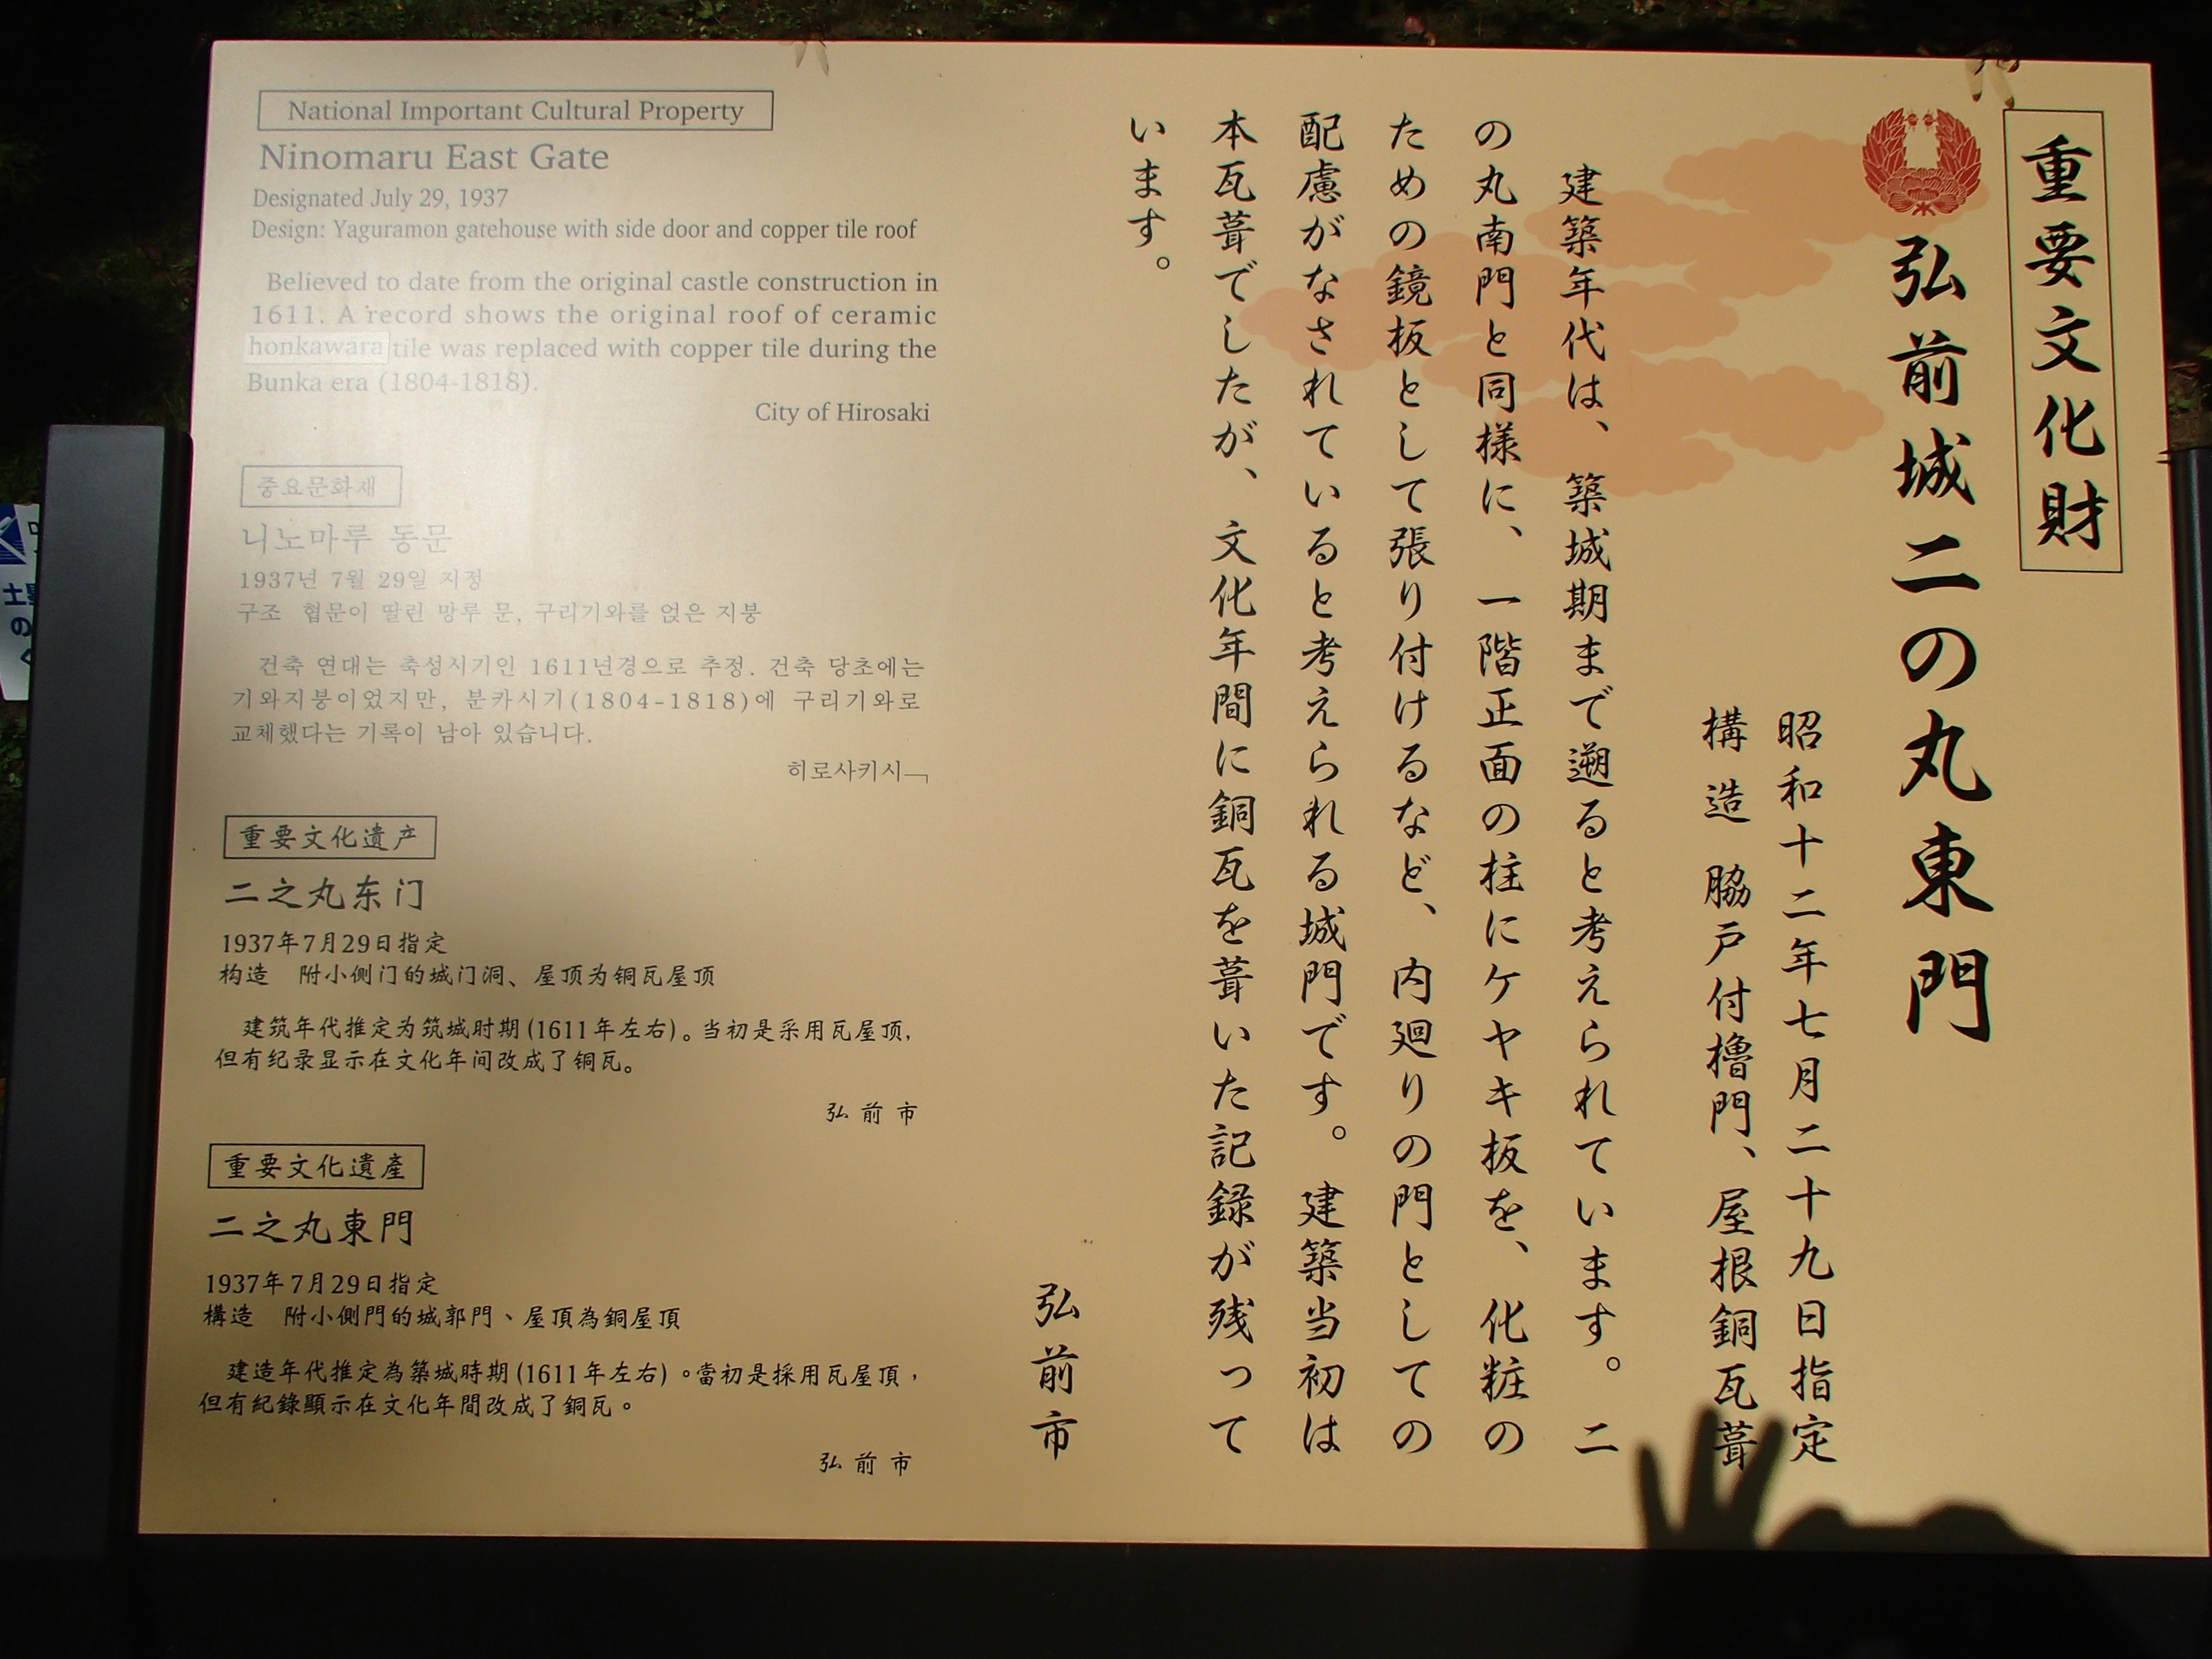 重要文化財
弘前城二の丸東門
昭和十二年七月二十九日指定
構造　脇戸付櫓門、屋根銅瓦葺
建築年代は、築城期まで遡ると考えられています。二
の丸南門と同様に、一階正面の柱にケヤキ板を、化粧の
ための鏡板として張り付けるなど、内廻りの門としての
配慮がなされていると考えられる城門です。建築当初は
本瓦葺でしたが、文化年間に銅瓦を葺いた記録が残って
います。
弘前市
National Important Cultural Property
Ninomaru East Gate
Designated July 29, 1937
Design: Yaguramon gatehouse with side door and copper tile roof
Believed to date from the original castle construction in
1611. A record shows the original roof of ceramic
honkawara tile was replaced with copper tile during the
Bunka era (1804-1818).
City of Hirosaki
중요문화재
니노마루 동문
1937년 7월 29일 지정
구조 협문이 딸린 망루 문, 구리기와를 얹은 지붕
건축 연대는 축성시기인 1611년경으로 추정. 건축 당초에는
기와지붕이었지만, 분카시기(1804-1818)에 구리기와로
교체했다는 기록이 남아 있습니다.
히로사키시
重要文化遗产
二之丸东门
1937年7月29日指定
构造　附小侧门的城门洞、屋顶为铜瓦屋顶
建筑年代推定为筑城时期(1611年左右)。当初是采用瓦屋顶,
但有纪录显示在文化年间改成了铜瓦。
弘前市
重要文化遺產
二之丸東門
1937年7月29日指定
構造　附小側門的城郭門、屋頂為銅屋頂
建造年代推定為築城時期(1611年左右)。當初是採用瓦屋頂，
但有紀錄顯示在文化年間改成了銅瓦。
弘前市